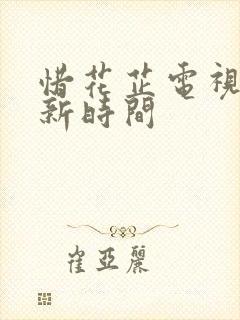 惜花芷電視
新時間
崔亞麗